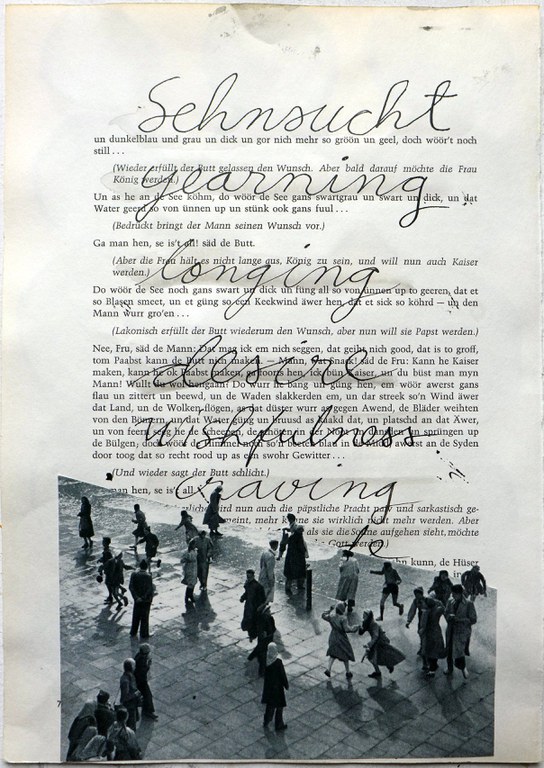 Sehnsucht
un dunkelblau und grau un dick un gor nich mehr so gröön un geel, doch wöör't noch
still . . .
(Wieder erfüllt der Butt gelassen den Wunsch. Aber bald darauf möchte die Frau
König werden.)
yearning
Un as he an de See köhm, do wöör de See gans swartgrau un swart un dick, un dat
Water geerd so von ünnen up un stünk ook gans fuul . . .
(Bedrückt bringt der Mann seinen Wunsch vor.)
Ga man hen, se is't all! säd de Butt.
(Aber die Frau hält es nicht lange aus, König zu sein, und will nun auch Kaiser
werden.)
longing
Do wöör de See noch gans swart un dick un füng all so von ünnen up to geeren, dat et
so Blasen smeet, un et güng so een Keekwind äwer hen, dat et sick so köhrd — un den
Mann wurr gro'en . . .
(Lakonisch erfüllt der Butt wiederum den Wunsch, aber nun will sie Papst werden.)
Nee, Fru, säd de Mann: Dat mag ick em nich seggen, dat geiht nich good, dat is to groff,
tom Paabst kann de Butt nich maken. — Mann, wat Snack! säd de Fru: Kann he Kaiser
maken, kann he ok Pabst maken, foorts hen, ick bün Kaiser, un du büst man myn
desire
Mann! Wullt du wol hengaan! Do wurr he bang un güng hen, em wöör awerst gans
flau un zittert un beewd, un de Waden slakkerden em, un dar streek so'n Wind äwer
dat Land, un de Wolken flögen, as dat düster wurr as gegen Awend, de Bläder weihten
von den Bömen, un dat Water güng un bruusd as kaakd dat, un platschd an dat Äwer,
wishfulness
un von feern de he de Scheepen, de schöten in der Noot un un springen up
de Bülgen, doch wöör de Himmel noch so'n beeten blau in de Midd, awerst an de Syden
door toog dat so recht rood up as een swohr Gewitter . . .
(Und wieder sagt der Butt schlicht.)
craving
man hen, se is't all
wird nun auch die päpstliche Pracht und sarkastisch ge-
meint, mehr könne sie wirklich nicht mehr werden. Aber
als sie die Sonne aufgehen sieht, möchte
Gott werden.)
kunn, de Hüser